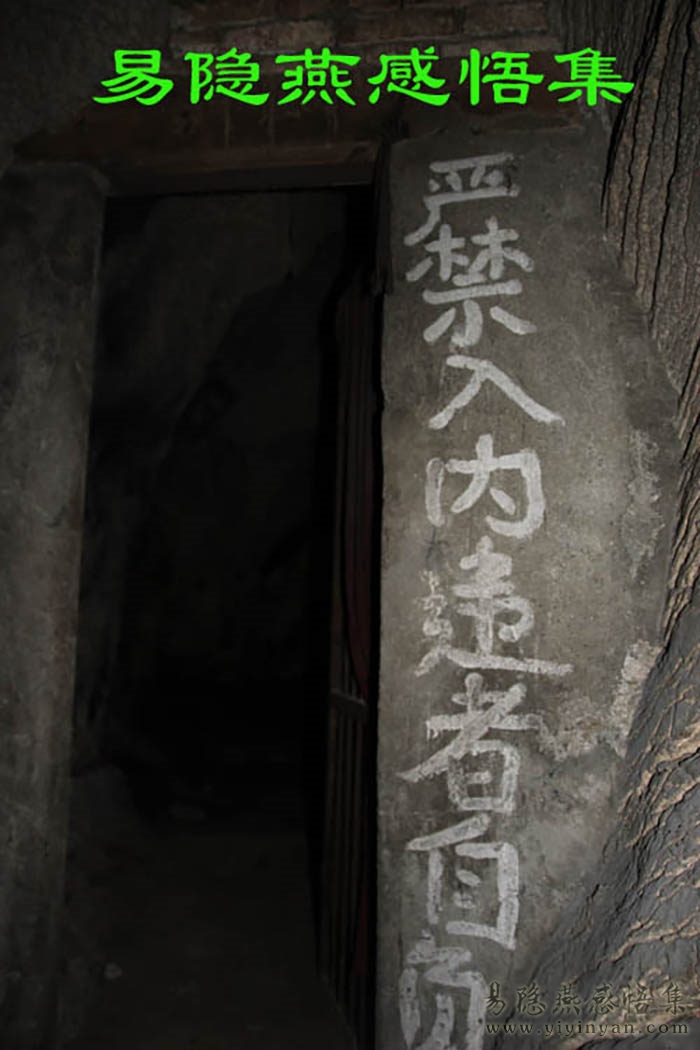 易隐燕感悟集
严禁入内违者自负
易隐燕感悟集
www.yiyinyan.com